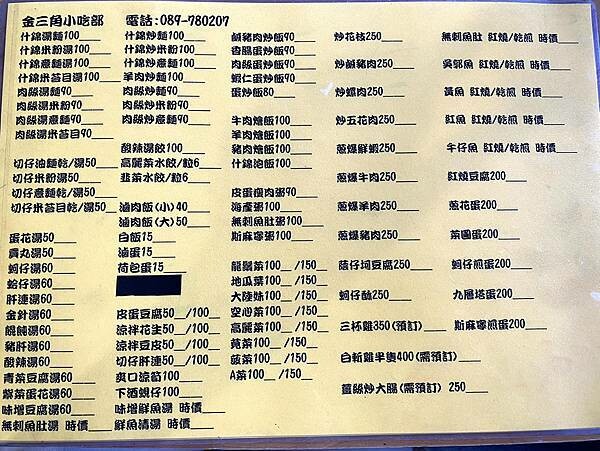 金三角小吃部 電話:089-780207
什錦湯麵100
什錦米粉湯100
什錦意麵湯100
什錦米苔目湯100
肉絲湯麵90
肉絲湯米粉90
肉絲湯意麵90
肉絲湯米苔目90
切仔油麵乾/湯50
切仔米粉湯50
切仔意麵乾/湯50
切仔米苔目乾/湯50
蛋花湯50
貢丸湯50
蚵仔湯60
蛤仔湯60
肝連湯60
金針湯60
餛飩湯60
豬肝湯60
酸辣湯60
青菜豆腐湯60
紫菜蛋花湯60
味增豆腐湯60
無刺魚肚湯 時價
什錦炒麵100
什錦炒米粉100
什錦炒意麵100
羊肉炒麵100
肉絲炒麵90
肉絲炒米粉90
肉絲炒意麵90
酸辣湯餃100
高麗菜水餃/粒6
韭菜水餃/粒6
滷肉飯(小)40
滷肉飯(大)50
白飯15
滷蛋15
荷包蛋15
皮蛋豆腐50 /100
涼拌花生50 /100
涼拌豆皮50 /100
切仔肝連50 /100
爽口涼筍100
下酒蜆仔100
味增鮮魚湯 時價
鮮魚清湯 時價
鹹豬肉炒飯90
香腸蛋炒飯90
肉絲蛋炒飯90
蝦仁蛋炒飯90
蛋炒飯80
牛肉燴飯100
羊肉燴飯100
豬肉燴飯100
什錦泡飯100
皮蛋瘦肉粥90
海產粥100
無刺魚肚粥100
斯麻寥粥100
龍鬚菜100 /150
地瓜葉100 /150
大陸妹100 /150
空心菜100 /150
高麗菜100 /150
莧菜100 /150
菠菜100 /150
A菜100 /150
炒花枝250
炒鹹豬肉250
炒螺肉250
炒五花肉250
蔥爆鮮蝦250
蔥爆牛肉250
蔥爆羊肉250
蔥爆豬肉250
蔭仔蚵豆腐250
蚵仔酥250
三杯雞350(預訂)
白斬雞半隻400(需預訂)
薑絲炒大腸(需預訂) 250
無刺魚肚 紅燒/乾煎 時價
吳郭魚 紅燒/乾煎 時價
黃魚 紅燒/乾煎 時價
紅魚 紅燒/乾煎 時價
午仔魚 紅燒/乾煎 時價
紅燒豆腐200
蔥花蛋200
菜圃蛋200
蚵仔煎蛋200
九層塔蛋200
斯麻寥煎蛋200